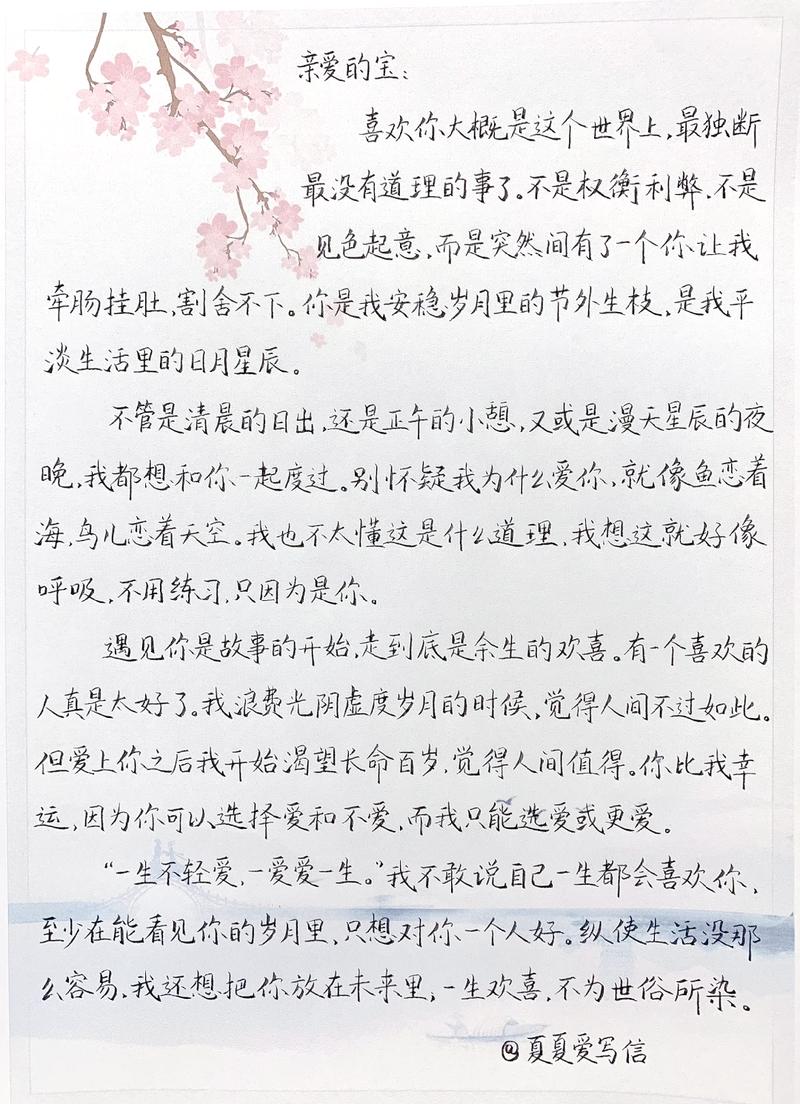 亲爱的宝：
喜欢你大概是这个世界上，最独断
最没有道理的事了。不是权衡利弊，不是
见色起意，而是突然间有了一个你让我
牵肠挂肚，割舍不下。你是我安稳岁月里的节外生枝，是我平
淡生活里的日月星辰。
不管是清晨的日出，还是正午的小憩，又或是漫天星辰的夜
晚，我都想和你一起度过。别怀疑我为什么爱你，就像鱼恋着
海，鸟儿恋着天空。我也不太懂这是什么道理，我想这就好像
呼吸，不用练习，只因为是你。
遇见你是故事的开始，走到底是余生的欢喜。有一个喜欢的
人真是太好了。我浪费光阴虚度岁月的时候，觉得人间不过如此。
但爱上你之后我开始渴望长命百岁，觉得人间值得。你比我幸
运，因为你可以选择爱和不爱，而我只能选爱或更爱。
“一生不轻爱，一爱爱一生。”我不敢说自己一生都会喜欢你，
至少在能看见你的岁月里，只想对你一个人好。纵使生活没那
么容易，我还想把你放在未来里；一生欢喜，不为世俗所染。
@夏夏爱写信